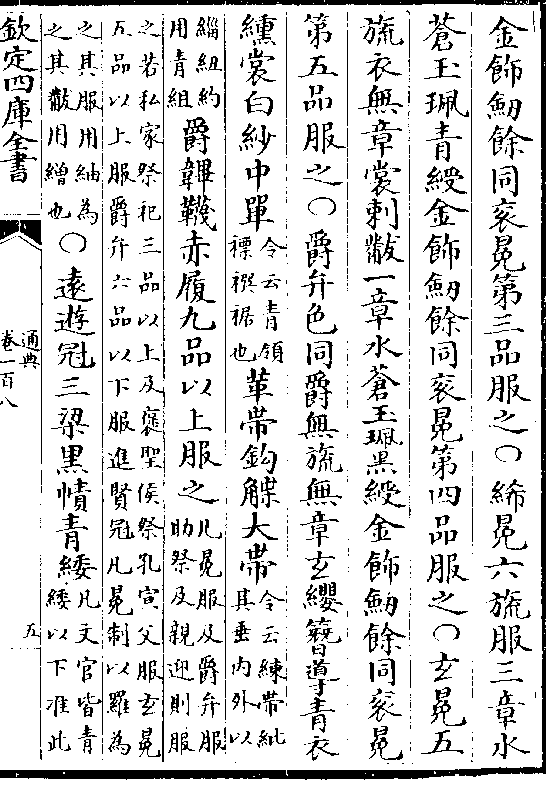 金飾劒餘同衮冕第三品服之○絺冕六旒服三章水
蒼玉珮青綬金飾劒餘同衮冕第四品服之○玄冕五
旒衣無章裳刺黻一章水蒼玉珮黒綬金飾劒餘同衮冕
第五品服之○爵弁色同爵無旒無章玄纓簪導青衣
纁裳白紗中單令云青領褾襈裾也革帶鈎䚢大帶令云練帶紕其垂内外以
緇紐約用青組爵韠韈赤履九品以上服之凡冕服及爵弁服助祭及親迎則服
之若私家祭祀三品以上及褒聖侯祭孔宣父服玄冕
五品以上服爵弁六品以下服進賢冠凡冕制以羅為
之其服用紬為之其黻用繒也○逺遊冠三梁黒幘青緌凡文官皆青緌以下准此
欽定四庫全書
通典
卷一百八
五